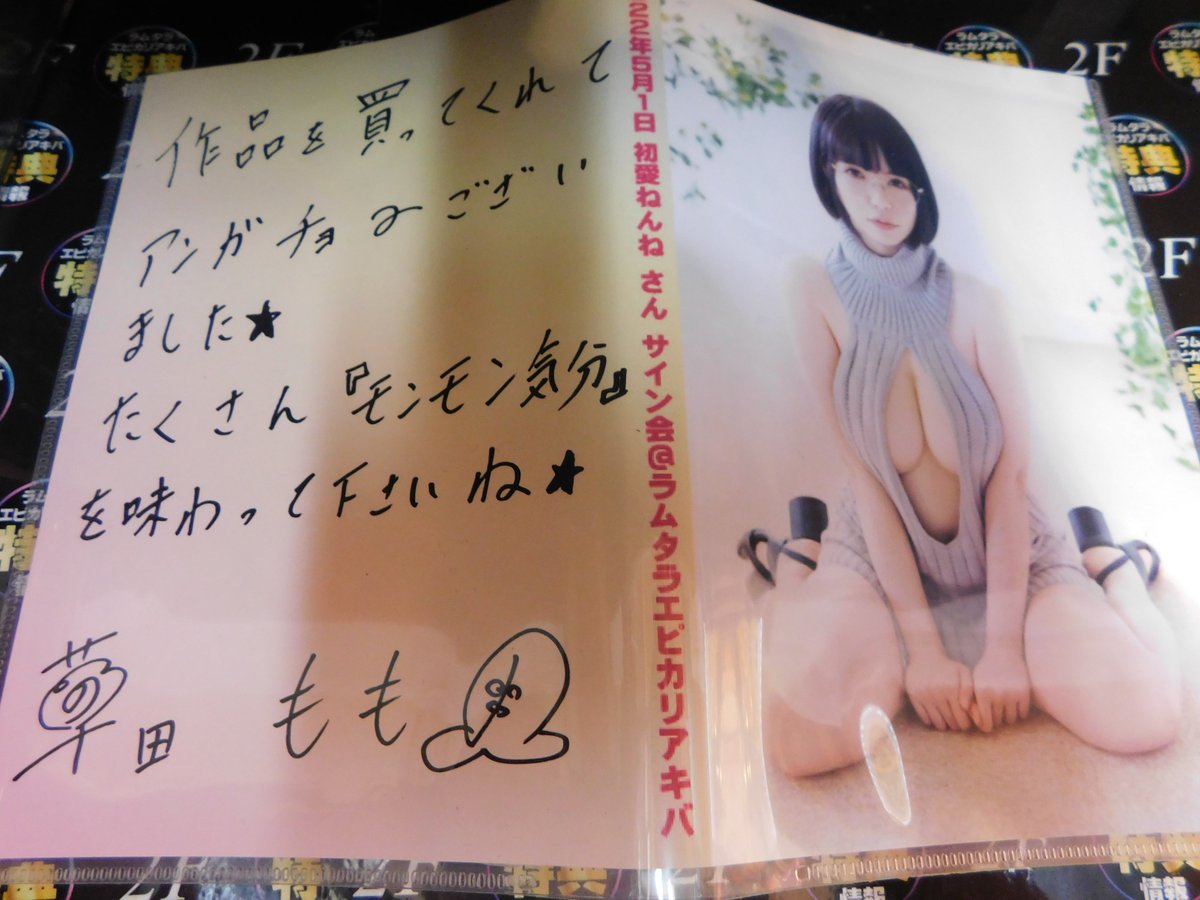 作品を買ってくれて
アンガチョみござい
ました★
たくさん『モンモン気分』
を味わって下さいね★
草田 もも
22年5月1日 初愛ねんね さん サイン会@ラムタラエピカリアキバ
2F
ラムタラ
エピカリアキバ
特典
情報